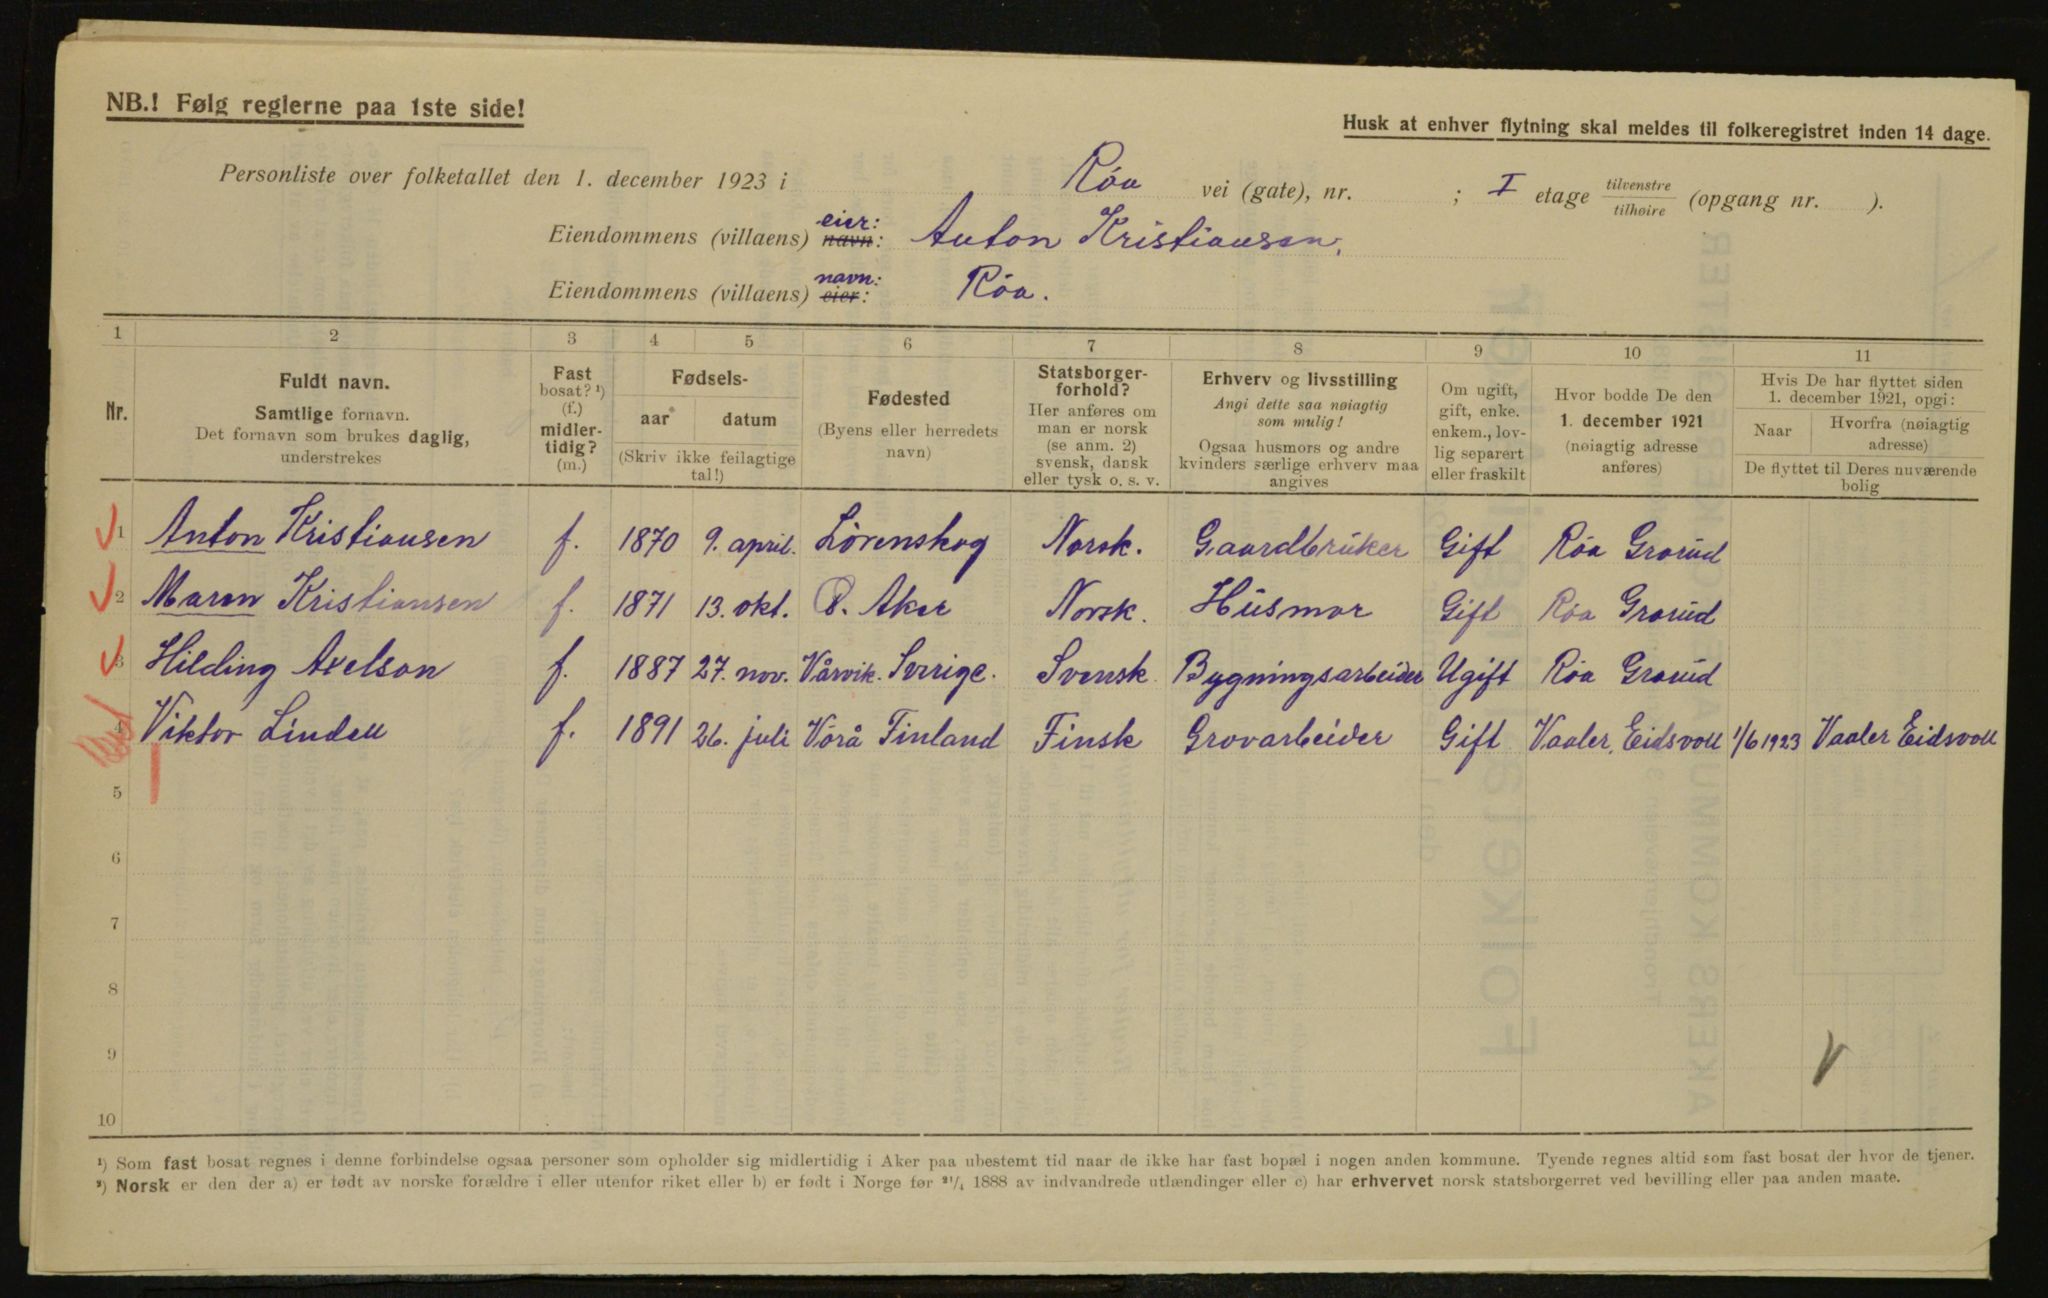 NB.! Følg reglerne paa 1ste side!
Husk at enhver flytning skal meldes til folkeregistret inden 14 dage.
Personliste over folketallet den 1. december 1923 i Røa vei (gate), nr. ; I etage tilvenstre tilhøire (opgang nr. ).
Eiendommens (villaens) navn: eier: Anton Kristiansen.
Eiendommens (villaens) eier: navn: Røa.
1 2 3 4 5 6 7 8 9 10 11
Nr.
Fuldt navn.
Samtlige fornavn.
Det fornavn som brukes daglig,
understrekes
Fast
bosat? ¹)
(f.)
midler-
tidig?
(m.)
Fødsels-
aar datum
(Skriv ikke feilagtige
tal!)
Fødested
(Byens eller herredets
navn)
Statsborger-
forhold?
Her anføres om
man er norsk
(se anm. 2)
svensk, dansk
eller tysk o. s. v.
Erhverv og livsstilling
Angi dette saa nøiagtig
som mulig!
Ogsaa husmors og andre
kvinders særlige erhverv maa
angives
Om ugift,
gift, enke.
enkem., lov-
lig separert
eller fraskilt
Hvor bodde De den
1. december 1921
(nøiagtig adresse
anføres)
Hvis De har flyttet siden
1. december 1921, opgi:
Naar
Hvorfra (nøiagtig
adresse)
De flyttet til Deres nuværende
bolig
1 Anton Kristiansen f. 1870 9. april. Lørenskog Norsk. Gaardbruker Gift Røa Grorud
2 Maren Kristiansen f. 1871 13. okt. Ø. Aker Norsk. Husmor Gift Røa Grorud
3 Hilding Axelson f. 1887 27. nov. Vårvik. Sverige. Svensk. Bygningsarbeider Ugift Røa Grorud
4 Viktor Lindell f. 1891 26. juli Vörå Finland Finsk Grovarbeider Gift Vaaler, Eidsvoll 1/6 1923 Vaaler Eidsvoll
5
6
7
8
9
10
¹) Som fast bosat regnes i denne forbindelse ogsaa personer som opholder sig midlertidig i Aker paa ubestemt tid naar de ikke har fast bopæl i nogen anden kommune. Tyende regnes altid som fast bosat der hvor de tjener.
²) Norsk er den der a) er født av norske forældre i eller utenfor riket eller b) er født i Norge før ²¹/₄ 1888 av indvandrede utlændinger eller c) har erhvervet norsk statsborgerret ved bevilling eller paa anden maate.